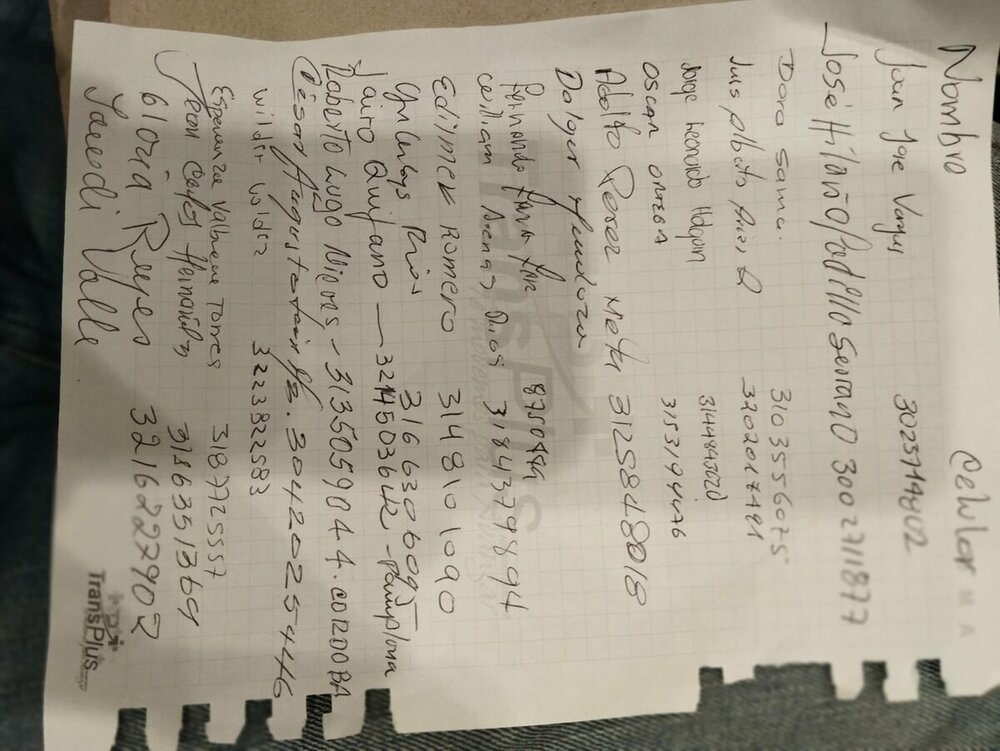 Nombro Celular
Juan José Vargas 3023114802
José Hilario Padillo Serrano 3002711877
Dora Sama. 3103556075
Luis Alberto Ariz Q 3202017491
Jorge Leonardo Holguin 3144843020
OSCAR ORTEGA 3153194476
Adolfo Perez Meta 3125848016
Dolger Mendoza
Fernando 8750444
William Arenas Dios 3184379894
Edimer Romero 3148101090
Yulubys Rios 3166306095
Jairo Quijano — 3214503642 - Pamplona
Roberto Lugo Nieves - 3135059044. CORDOBA
César Augusto 30420254446
Wildir Wildir 3223822583
Esperanza Valbuena Torres 3187725557
Jean Carlos Hernández 3186351369
Gloria Reyes 3216227902
Yaneedi Valle
TransPlus
TransPlus